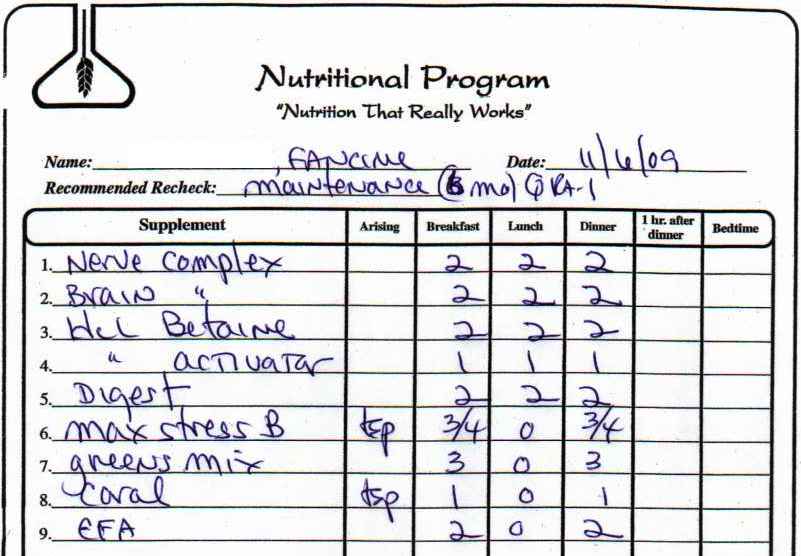 Nutritional Program
"Nutrition That Really Works"
Name: , FANCINE Date: 11/6/09
Recommended Recheck: maintenance (6 mo) QRA-1
Supplement Arising Breakfast Lunch Dinner 1 hr. after dinner Bedtime
1. Nerve Complex 2 2 2
2. Brain " 2 2 2
3. Hcl Betaine 2 2 2
4. " activator 1 1 1
5. Digest 2 2 2
6. max stress B tsp 3/4 0 3/4
7. greens mix 3 0 3
8. Coral tsp 1 0 1
9. EFA 2 0 2